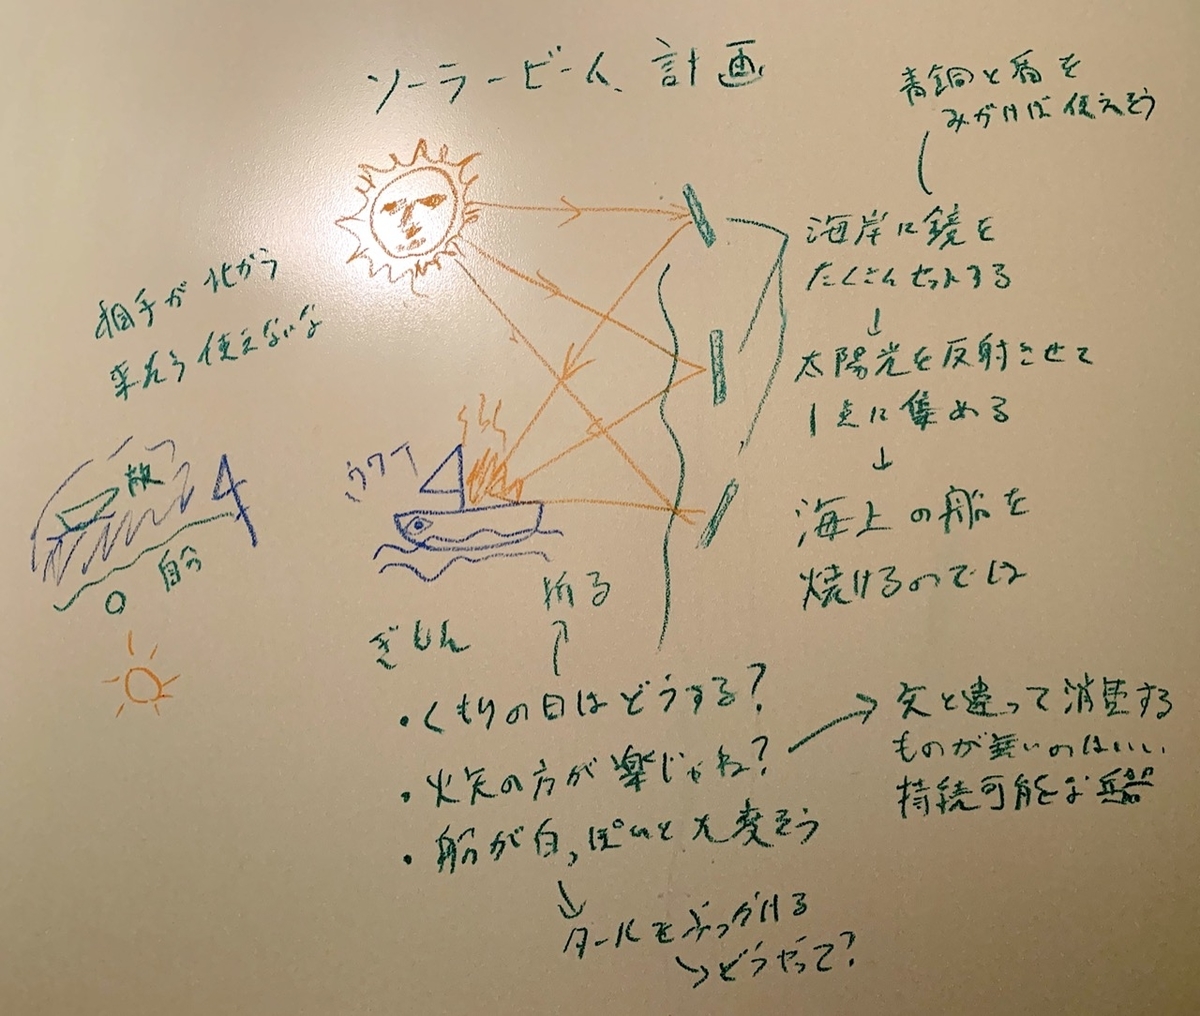 ソーラービーム計画
青銅と盾を
みがけば使えそう
海岸に鏡を
たくさんセットする
↓
太陽光を反射させて
1点に集める
↓
海上の船を
焼けるのでは
相手が北から
来たら使えないな
敵
自分
ウワー
祈る
ぎもん
・くもりの日はどうする?
・火矢の方が楽じゃね?
→矢と違って消費する
ものが無いのはいい
持続可能な兵器
・船が白っぽいと大変そう
↓
タールをぶっかける
→どうやって?